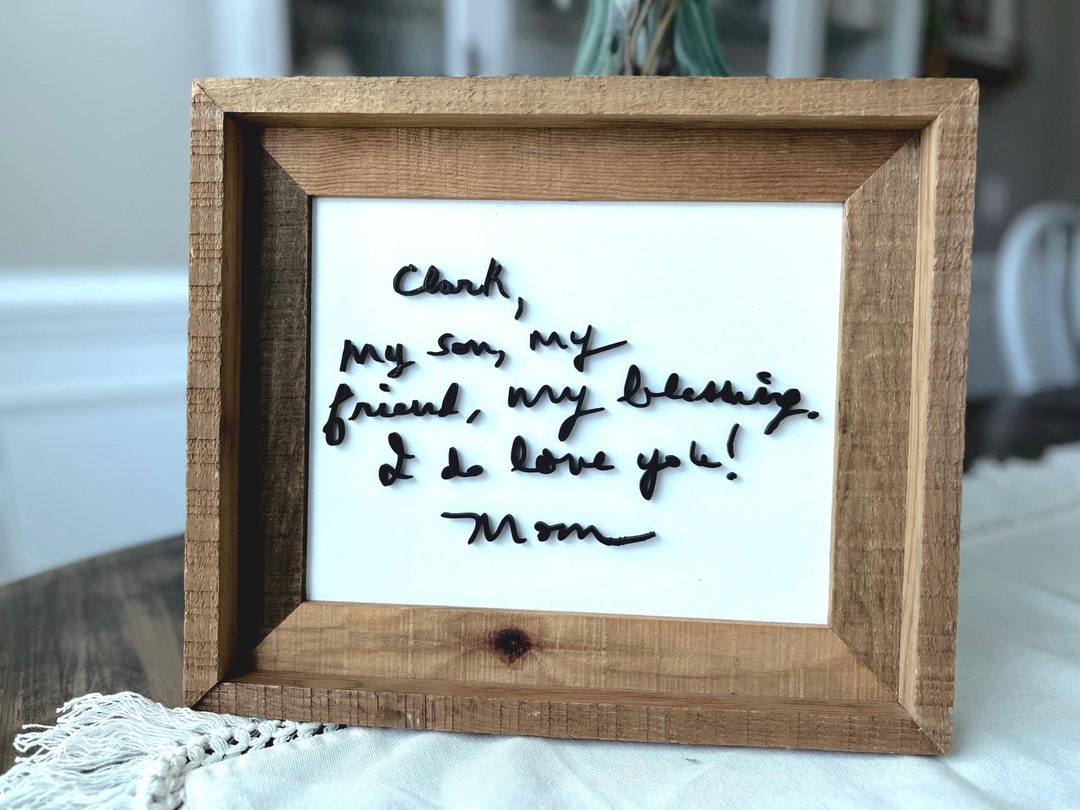 Clark,
my son, my
friend, my blessing.
I do love you!
Mom